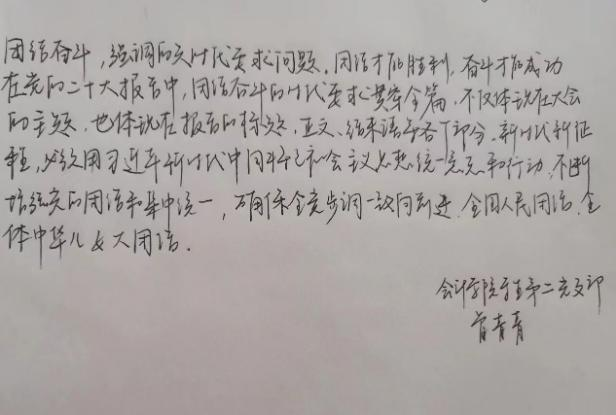 团结奋斗，强调的是时代要求问题。团结才能胜利，奋斗才能成功
在党的二十大报告中，团结奋斗的时代要求贯穿全篇，不仅体现在大会
的主题，也体现在报告的标题、正文、结束语等各个部分。新时代新征
程，必须用习近平新时代中国特色社会主义思想统一意志和行动，不断
增强党的团结和集中统一，确保全党步调一致向前进，全国人民团结，全
体中华儿女大团结。
会计学院学生第二党支部
青青